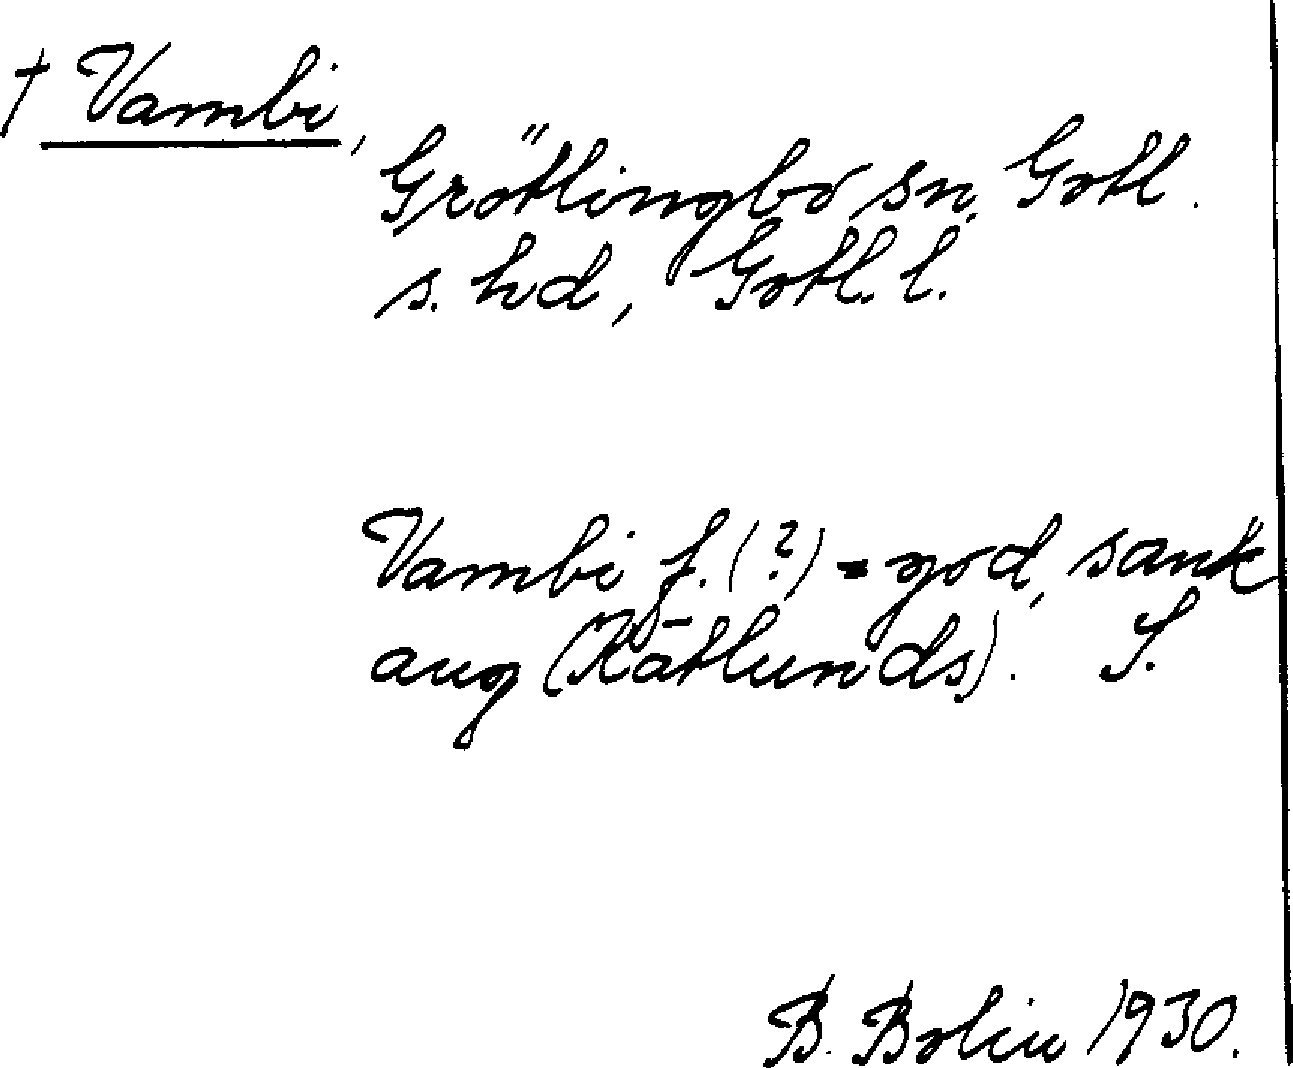 † Vambi,
Grötlingbo sn, Gotl.
s. hd, Gotl. l.
Vambi f. (?) = god, sank
aug (Rātlunds). S.
B. Bolin 1930.